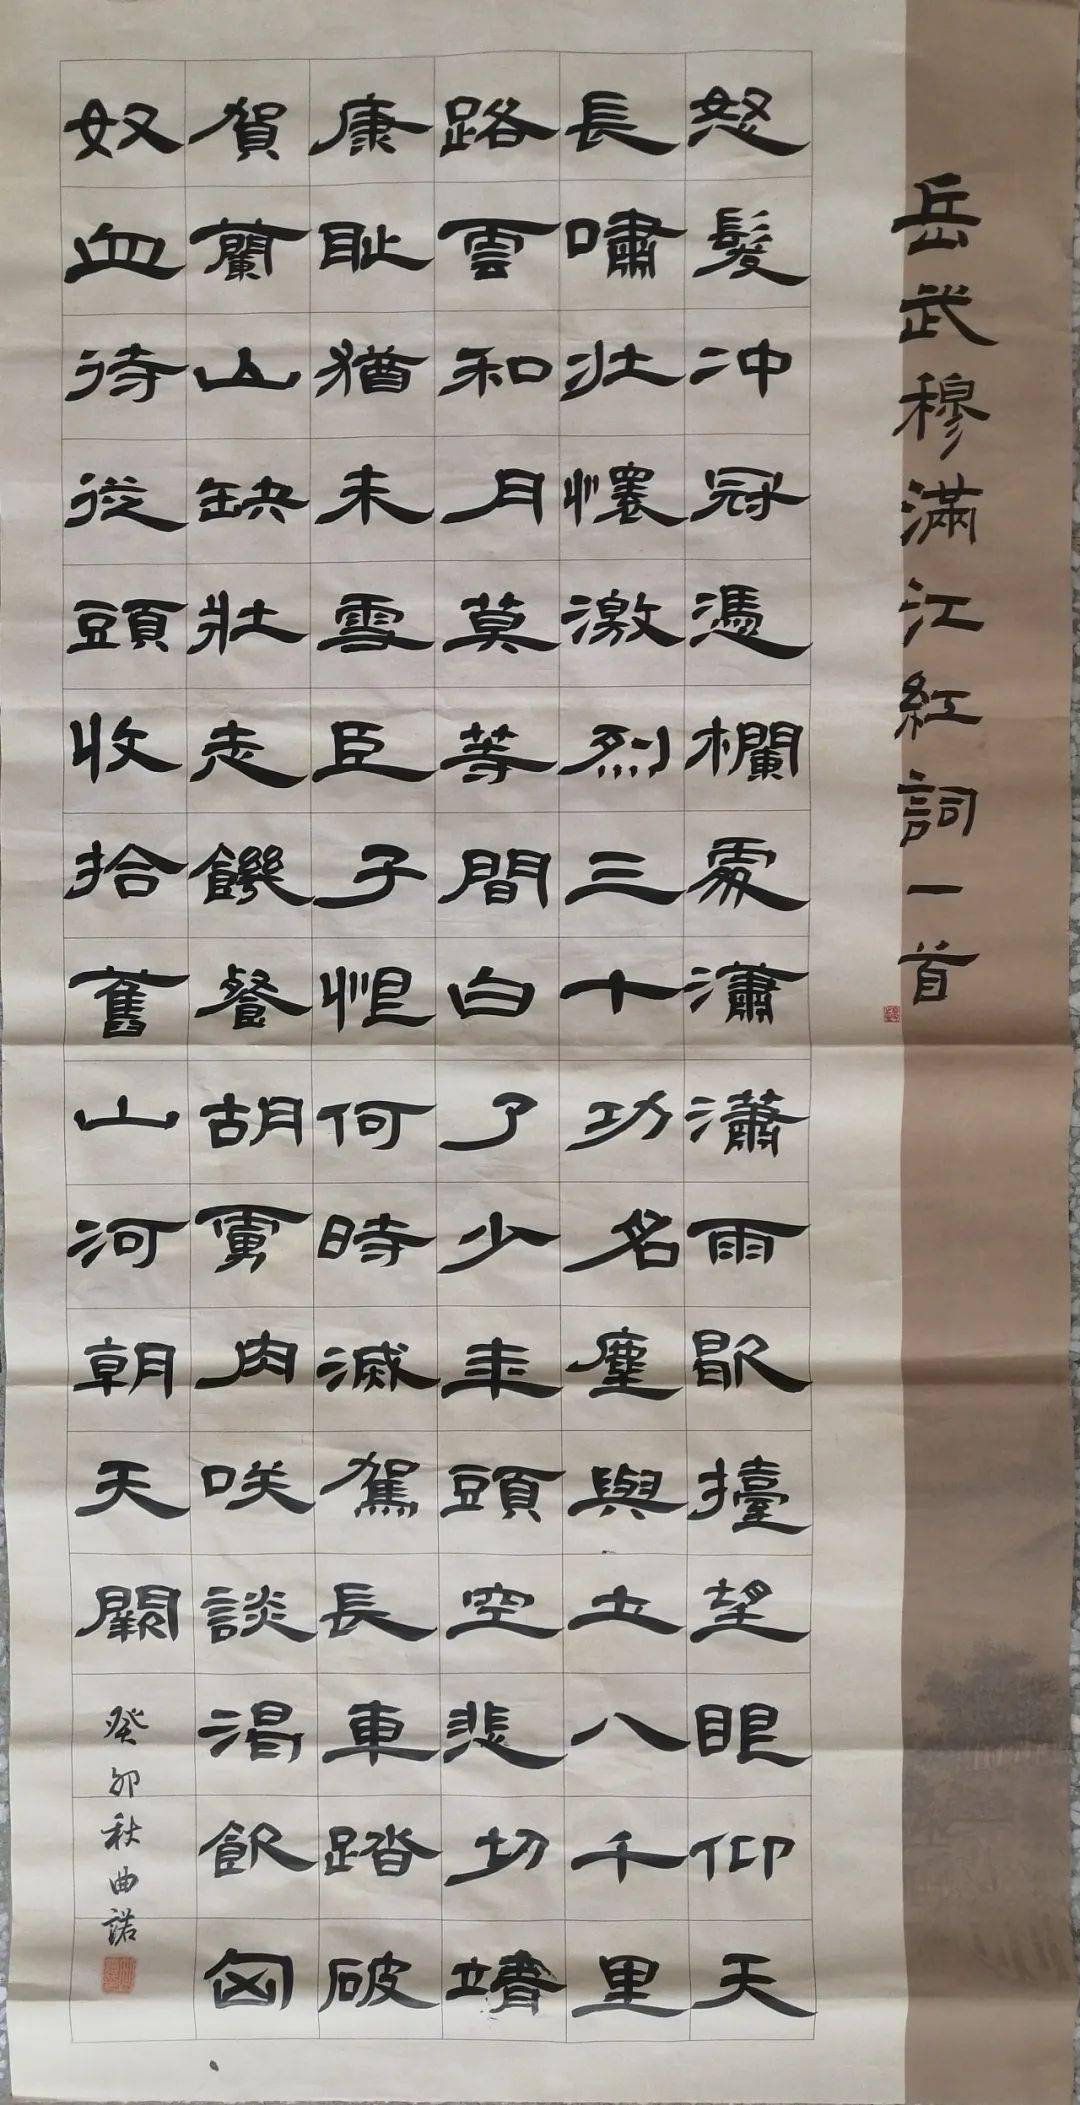 岳武穆滿江紅詞一首
怒髮冲冠憑欄處瀟瀟雨歇擡望眼仰天
長嘯壯懷激烈三十功名塵與土八千里
路雲和月莫等閒白了少年頭空悲切靖
康恥猶未雪臣子恨何時滅駕長車踏破
賀蘭山缺壯志飢餐胡虜肉咲談渴飲匈
奴血待從頭收拾舊山河朝天闕
癸卯秋曲諾